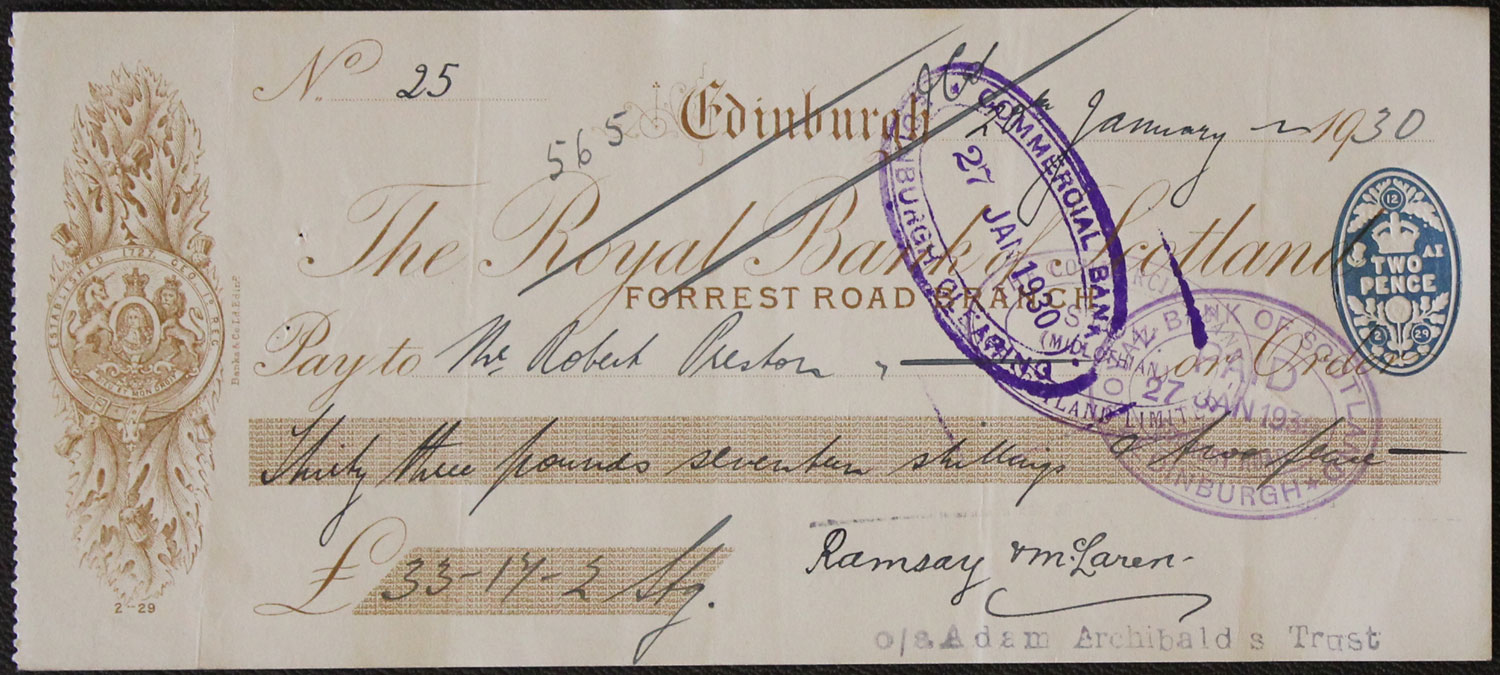 No 25
565
Edinburgh January 1930
The Royal Bank of Scotland
FORREST ROAD BRANCH
Pay to Mr Robert Preston, or Order
Thirty three pounds seventeen shillings & two pence
£ 33-17-2 Stg.
Ramsay & McLaren
o/a Adam Archibald s Trust
ESTABLISHED 1727. GEO. Io REG
DIEU ET MON DROIT
Banks & Co. Ld. Edinr.
2-29
COMMERCIAL BANK
EDINBURGH CLEARING
27 JAN 1930
(MIDLOTHIAN)
LIMITED
ROYAL BANK OF SCOTLAND
PAID
27 JAN 193
EDINBURGH
12
AI
TWO
PENCE
2 29